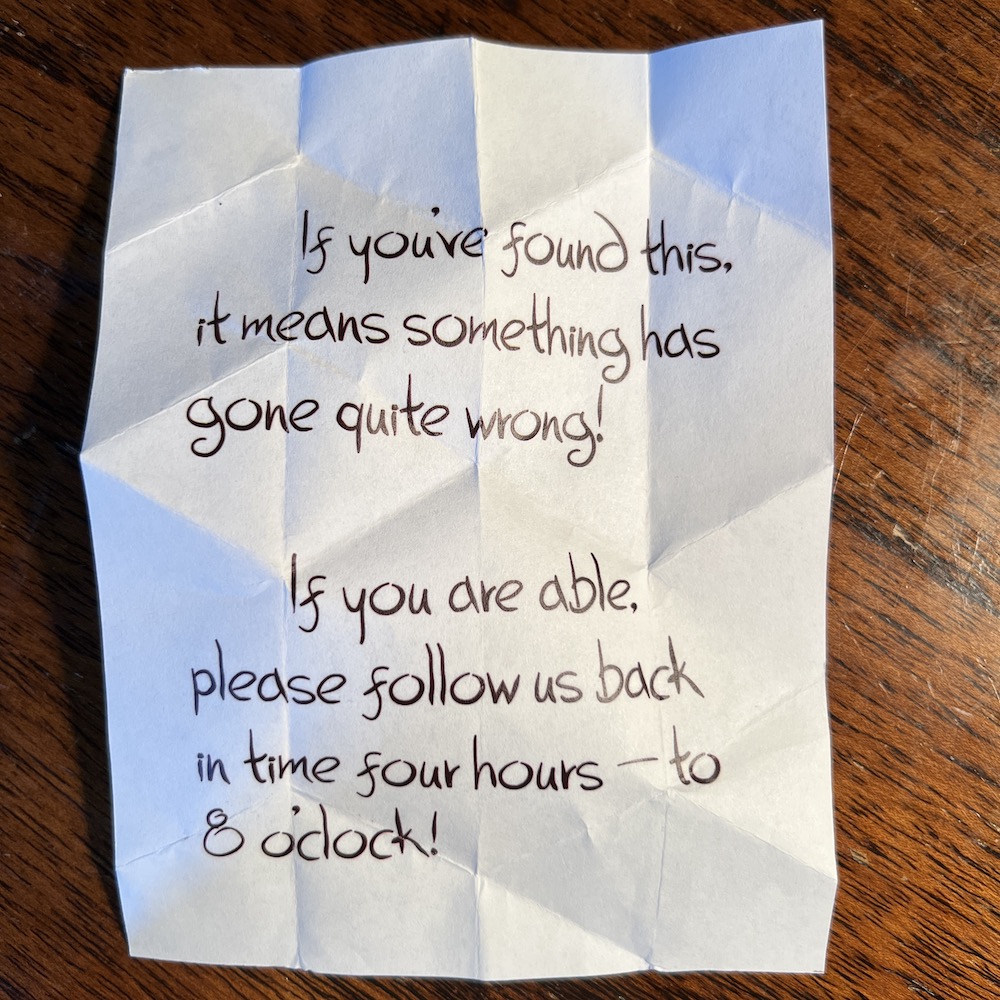 If you've found this,
it means something has
gone quite wrong!
If you are able,
please follow us back
in time four hours – to
8 o'clock!